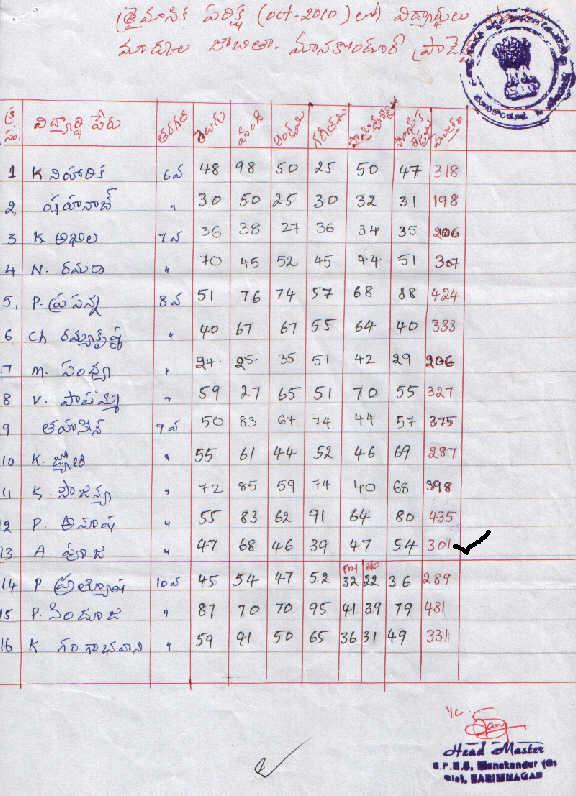 త్రైమాసిక పరీక్ష (oct-2010) లో విద్యార్థులు
మార్కుల జాబితా- మానకొండూర్
క్ర సం. విద్యార్థి పేరు తరగతి తెలుగు హిందీ ఇంగ్లీషు గణితము
1 K నిహారిక 6వ 48 98 50 25 50 47 318
2 షహనాజ్ " 30 50 25 30 32 31 198
3 K అఖిల 7వ 36 38 27 36 34 35 206
4 N. రమాదా " 70 45 52 45 44 51 307
5. P. ప్రసన్న 8వ 51 76 74 57 68 98 424
6 Ch రమ్యకృష్ణ " 40 67 67 55 64 40 333
7 M. సంధ్య " 24 25 35 51 42 29 206
8 V. పావని " 59 27 65 51 70 55 327
9 తహసీన్ 9వ 50 83 67 74 44 57 375
10 K. జ్యోతి " 55 61 44 52 46 69 287
11 K. సౌజన్య " 72 85 59 74 40 68 398
12 P. అనూష " 55 83 62 91 64 80 435
13 A పూజ " 47 68 46 39 47 54 301
14 P ప్రత్యూష 10వ 45 54 47 52 32 22 36 289
15 P. సింధూజ " 87 70 70 95 41 39 79 481
16 K గంగాభవాని " 59 91 50 65 36 31 49 331
Head Master